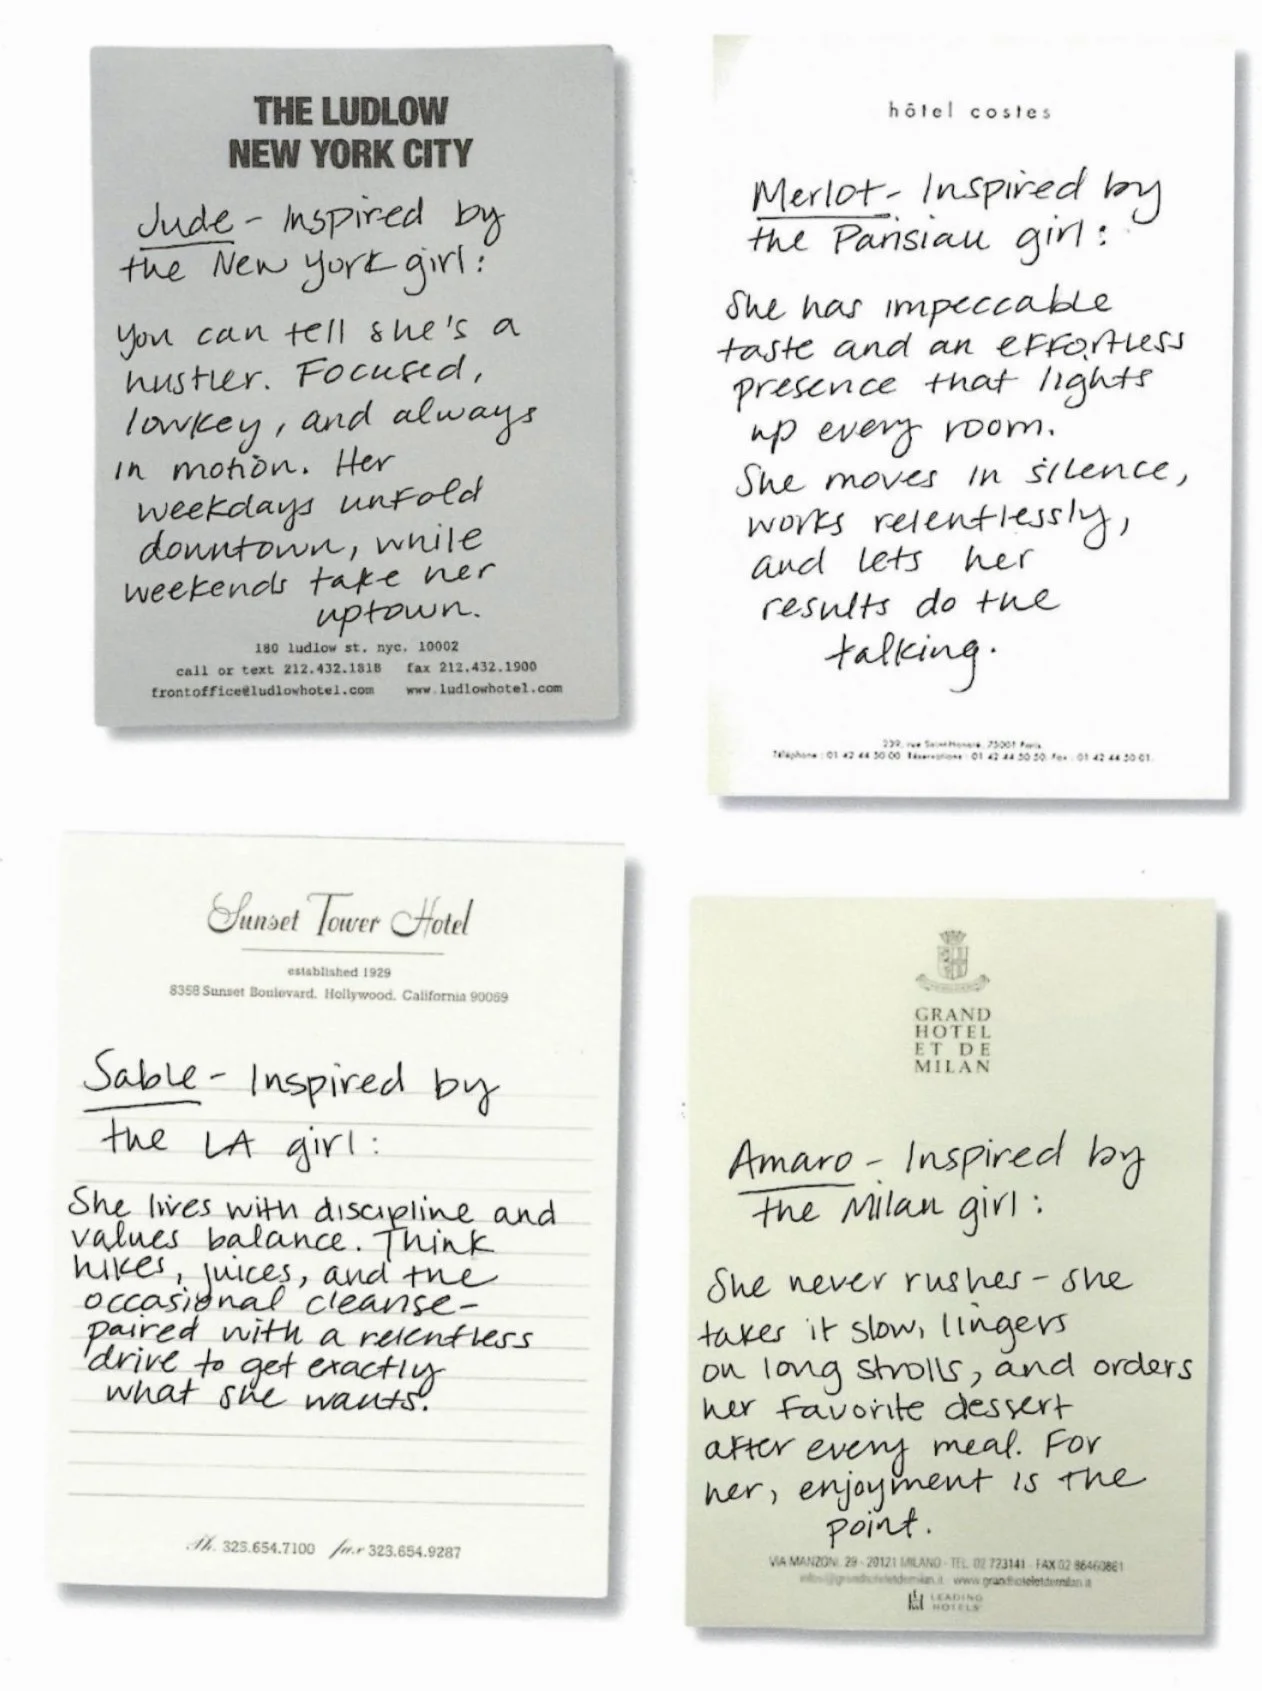 THE LUDLOW
NEW YORK CITY
Jude - Inspired by
the New York girl:
You can tell she's a
hustler. Focused,
lowkey, and always
in motion. Her
weekdays unfold
downtown, while
weekends take her
uptown.
180 ludlow st. nyc. 10002
call or text 212.432.1818 fax 212.432.1900
frontoffice@ludlowhotel.com www.ludlowhotel.com
hôtel costes
Merlot - Inspired by
the Parisian girl:
She has impeccable
taste and an effortless
presence that lights
up every room.
She moves in silence,
works relentlessly,
and lets her
results do the
talking.
239, rue Saint-Honoré, 75001 Paris
Téléphone : 01 42 44 50 00 Réservations : 01 42 44 50 50 Fax : 01 42 44 50 01
Sunset Tower Hotel
established 1929
8358 Sunset Boulevard, Hollywood, California 90069
Sable - Inspired by
the LA girl:
She lives with discipline and
values balance. Think
hikes, juices, and the
occasional cleanse-
paired with a relentless
drive to get exactly
what she wants.
Ph. 323.654.7100 fax 323.654.9287
GRAND
HOTEL
ET DE
MILAN
Amaro - Inspired by
the Milan girl:
She never rushes - she
takes it slow, lingers
on long strolls, and orders
her favorite dessert
after every meal. For
her, enjoyment is the
point.
VIA MANZONI, 29 - 20121 MILANO - TEL. 02 723141 - FAX 02 86460861
www.grandhoteletdemilan.it
LEADING
HOTELS